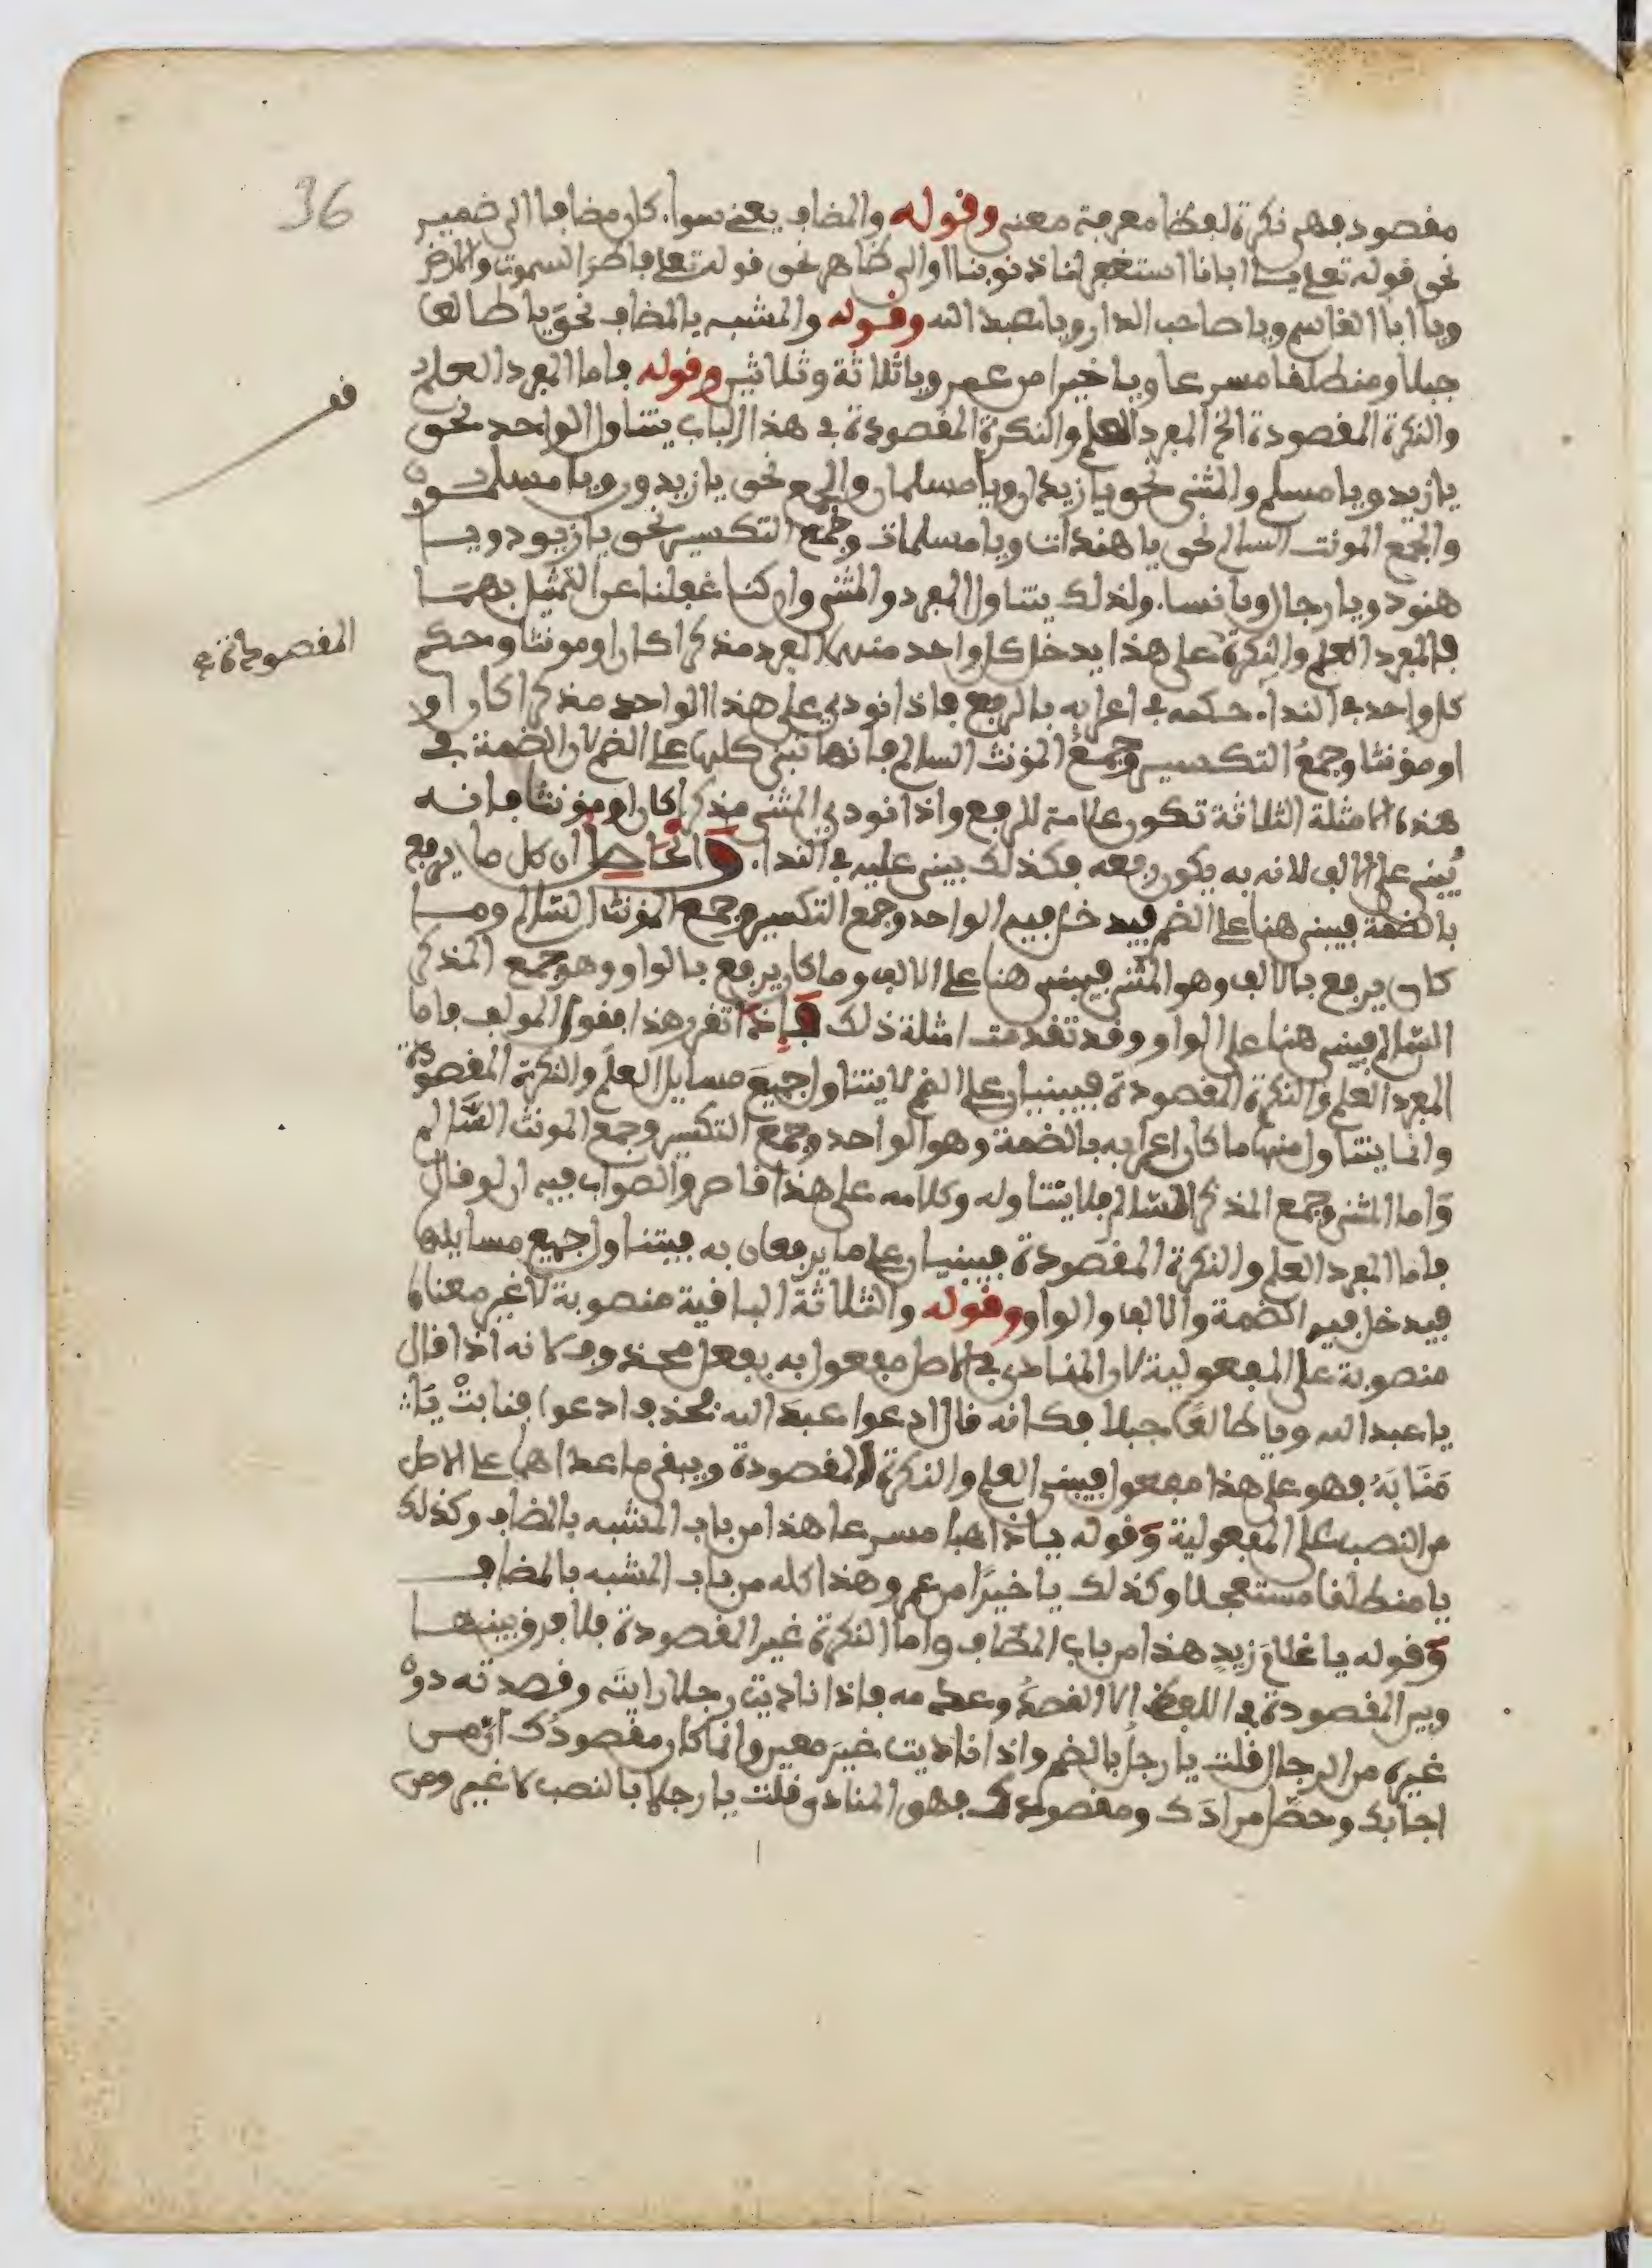 36
مقصود فهي نكرة لفظا معرفة معنى وقوله والمضاف يعني سواء كان مضافا الى ضمير
نحو قوله تعلى يا ابانا استغفر لنا ذنوبنا او الى ظاهر نحو قوله تعلى فاطر السموت والارض
ويا ابا القاسم ويا صاحب الدار ويا عبد الله وقوله والمشبه بالمضاف نحو يا طالعا
جبلا ومنطلقا مسرعا ويا خيرا من عمر ويا ثلاثة وثلاثين وقوله فاما المفرد العلم
والنكرة المقصودة الخ المفرد العلم والنكرة المقصودة في هذا الباب يتناول الواحد نحو
يا زيد ويا مسلم والمثنى نحو يا زيدان ويا مسلمان والجمع نحو يا زيدون ويا مسلمون
والجمع المونث السالم نحو يا هندات ويا مسلمات وجمع التكسير نحو يا زيود ويا
هنود ويا رجال ويا نساء ولذلك يتناول المفرد والمثنى وان كنا غفلنا عن التمثيل بهما
فالمفرد العلم والنكرة على هذا يدخل كل واحد منهما المفرد مذكرا كان او مونثا وحكم
المقصودة
كل واحد في النداء حكمه في اعرابه بالرفع فاذا نودي على هذا الواحد مذكرا كان او
او مؤنثا وجمعُ التكسير وجمعُ المؤنث السالم فانها تبنى كلها على الضم لان الضمة في
هذه الامثلة الثلاثة تكون علامة للرفع واذا نودي المثنى مذكرا كان او مؤنثا فانه
يُبنى على الالف لانه به يكون رفعه فكذلك يبنى عليه في النداء والحاصل ان كل ما يرفع
بالضمة فيبنى هنا على الضم فيدخل فيه الواحد وجمع التكسير وجمع المؤنث السالم وما
كان يرفع بالالف وهو المثنى فيبنى هنا على الالف وما كان يرفع بالواو وهو جمع المذكر
السّالم فيبنى هنا على الواو وقد تقدمت امثلة ذلك فاذا تقرر هذا فقول المولف فاما
المفرد العلم والنكرة المقصودة فيبنيان على الضم لا يتناول جميعَ مسايل العلم والنكرة المقصودة
وانما يتناول منها ما كان اعرابه بالضمة وهو الواحد وجمع التكسير وجمع المونث السّالم
وَاما المثنى وجمع المذكر السّالم فلا يتناوله وكلامه على هذا قاصر والصواب فيه ان لو قال
فاما المفرد العلم والنكرة المقصودة فيبنيان على ما يرفعان به فيتناول جميع مسايلها
فيدخل فيه الضمة والالف والواو وقوله والثلاثة الباقية منصوبة لا غير معناه
منصوبة على المفعولية لان المنادى في الاصل مفعول به بفعل محذوف لانه اذا قال
يا عبد الله ويا طالعًا جبلا فكانه قال ادعوا عبدَ الله فحذف ادعوا فنابتْ يَا
مَنَابَهُ فهو على هذا مفعول فيبنى العلم والنكرة المقصودة ويبقى ما عداهما على الاصل
من النصب على المفعولية وَقوله يا ذاهبا مسرعا هذا من باب المشبه بالمضاف وكذلك
يا منطلقا مستعجلا وكذلك يا خيرًا من عمرو هذا كله من باب المشبه بالمضاف
وَقوله يا غلامَ زيدٍ هذا من باب المضاف واما النكرة غير المقصودة فلا فرق بينهما
وبين المقصودة في اللفظ الا القصدُ وعدمه فاذا ناديت رجلا رايته وقصدته دون
غيره من الرجال قلت يا رجلُ بالضم واذا ناديت غيرَ معين وانما كان مقصودُك ان من
اجابك وحصّل مرادَك ومقصودك فهو المنادى قلت يا رجلا بالنصب لا غير ومن